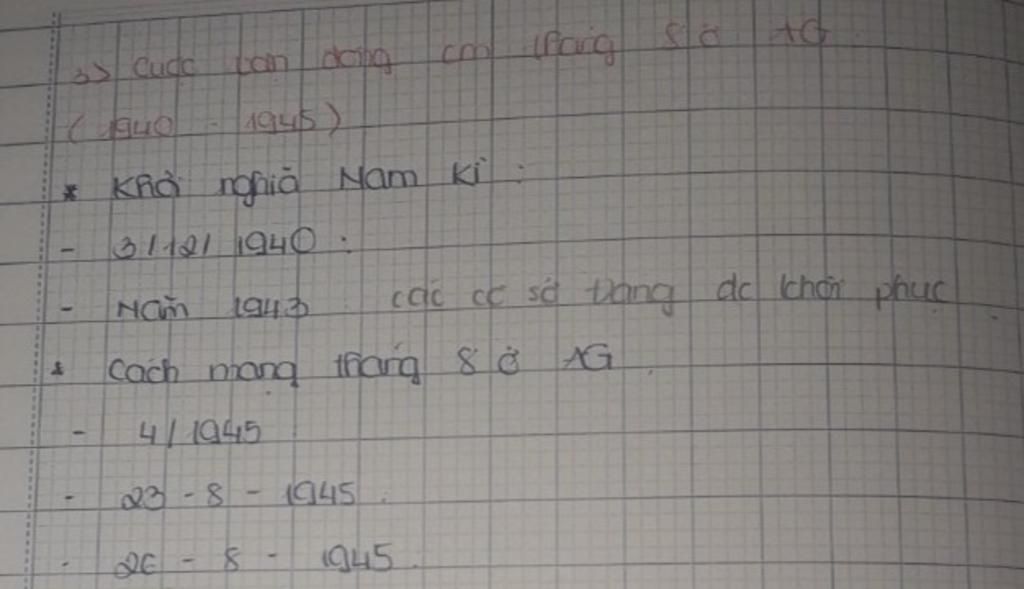 3> Cuộc vận động cm tháng 8 ở AG
(1940 - 1945)
* Khởi nghĩa Nam Kì :
- 3/12/1940 :
- Năm 1943 các cơ sở Đảng dc khôi phục
* Cách mạng tháng 8 ở AG.
- 4/1945
- 23 - 8 - 1945.
- 26 - 8 - 1945.